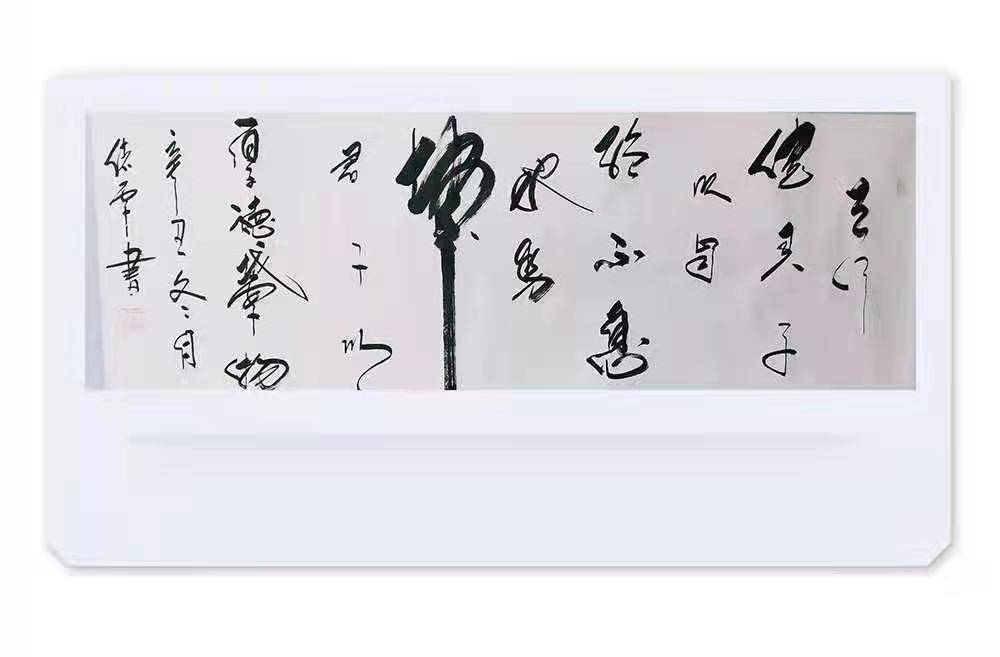 天行
健君子
以自
强不息
地势
坤
君子以
厚德载物
辛丑冬月
書